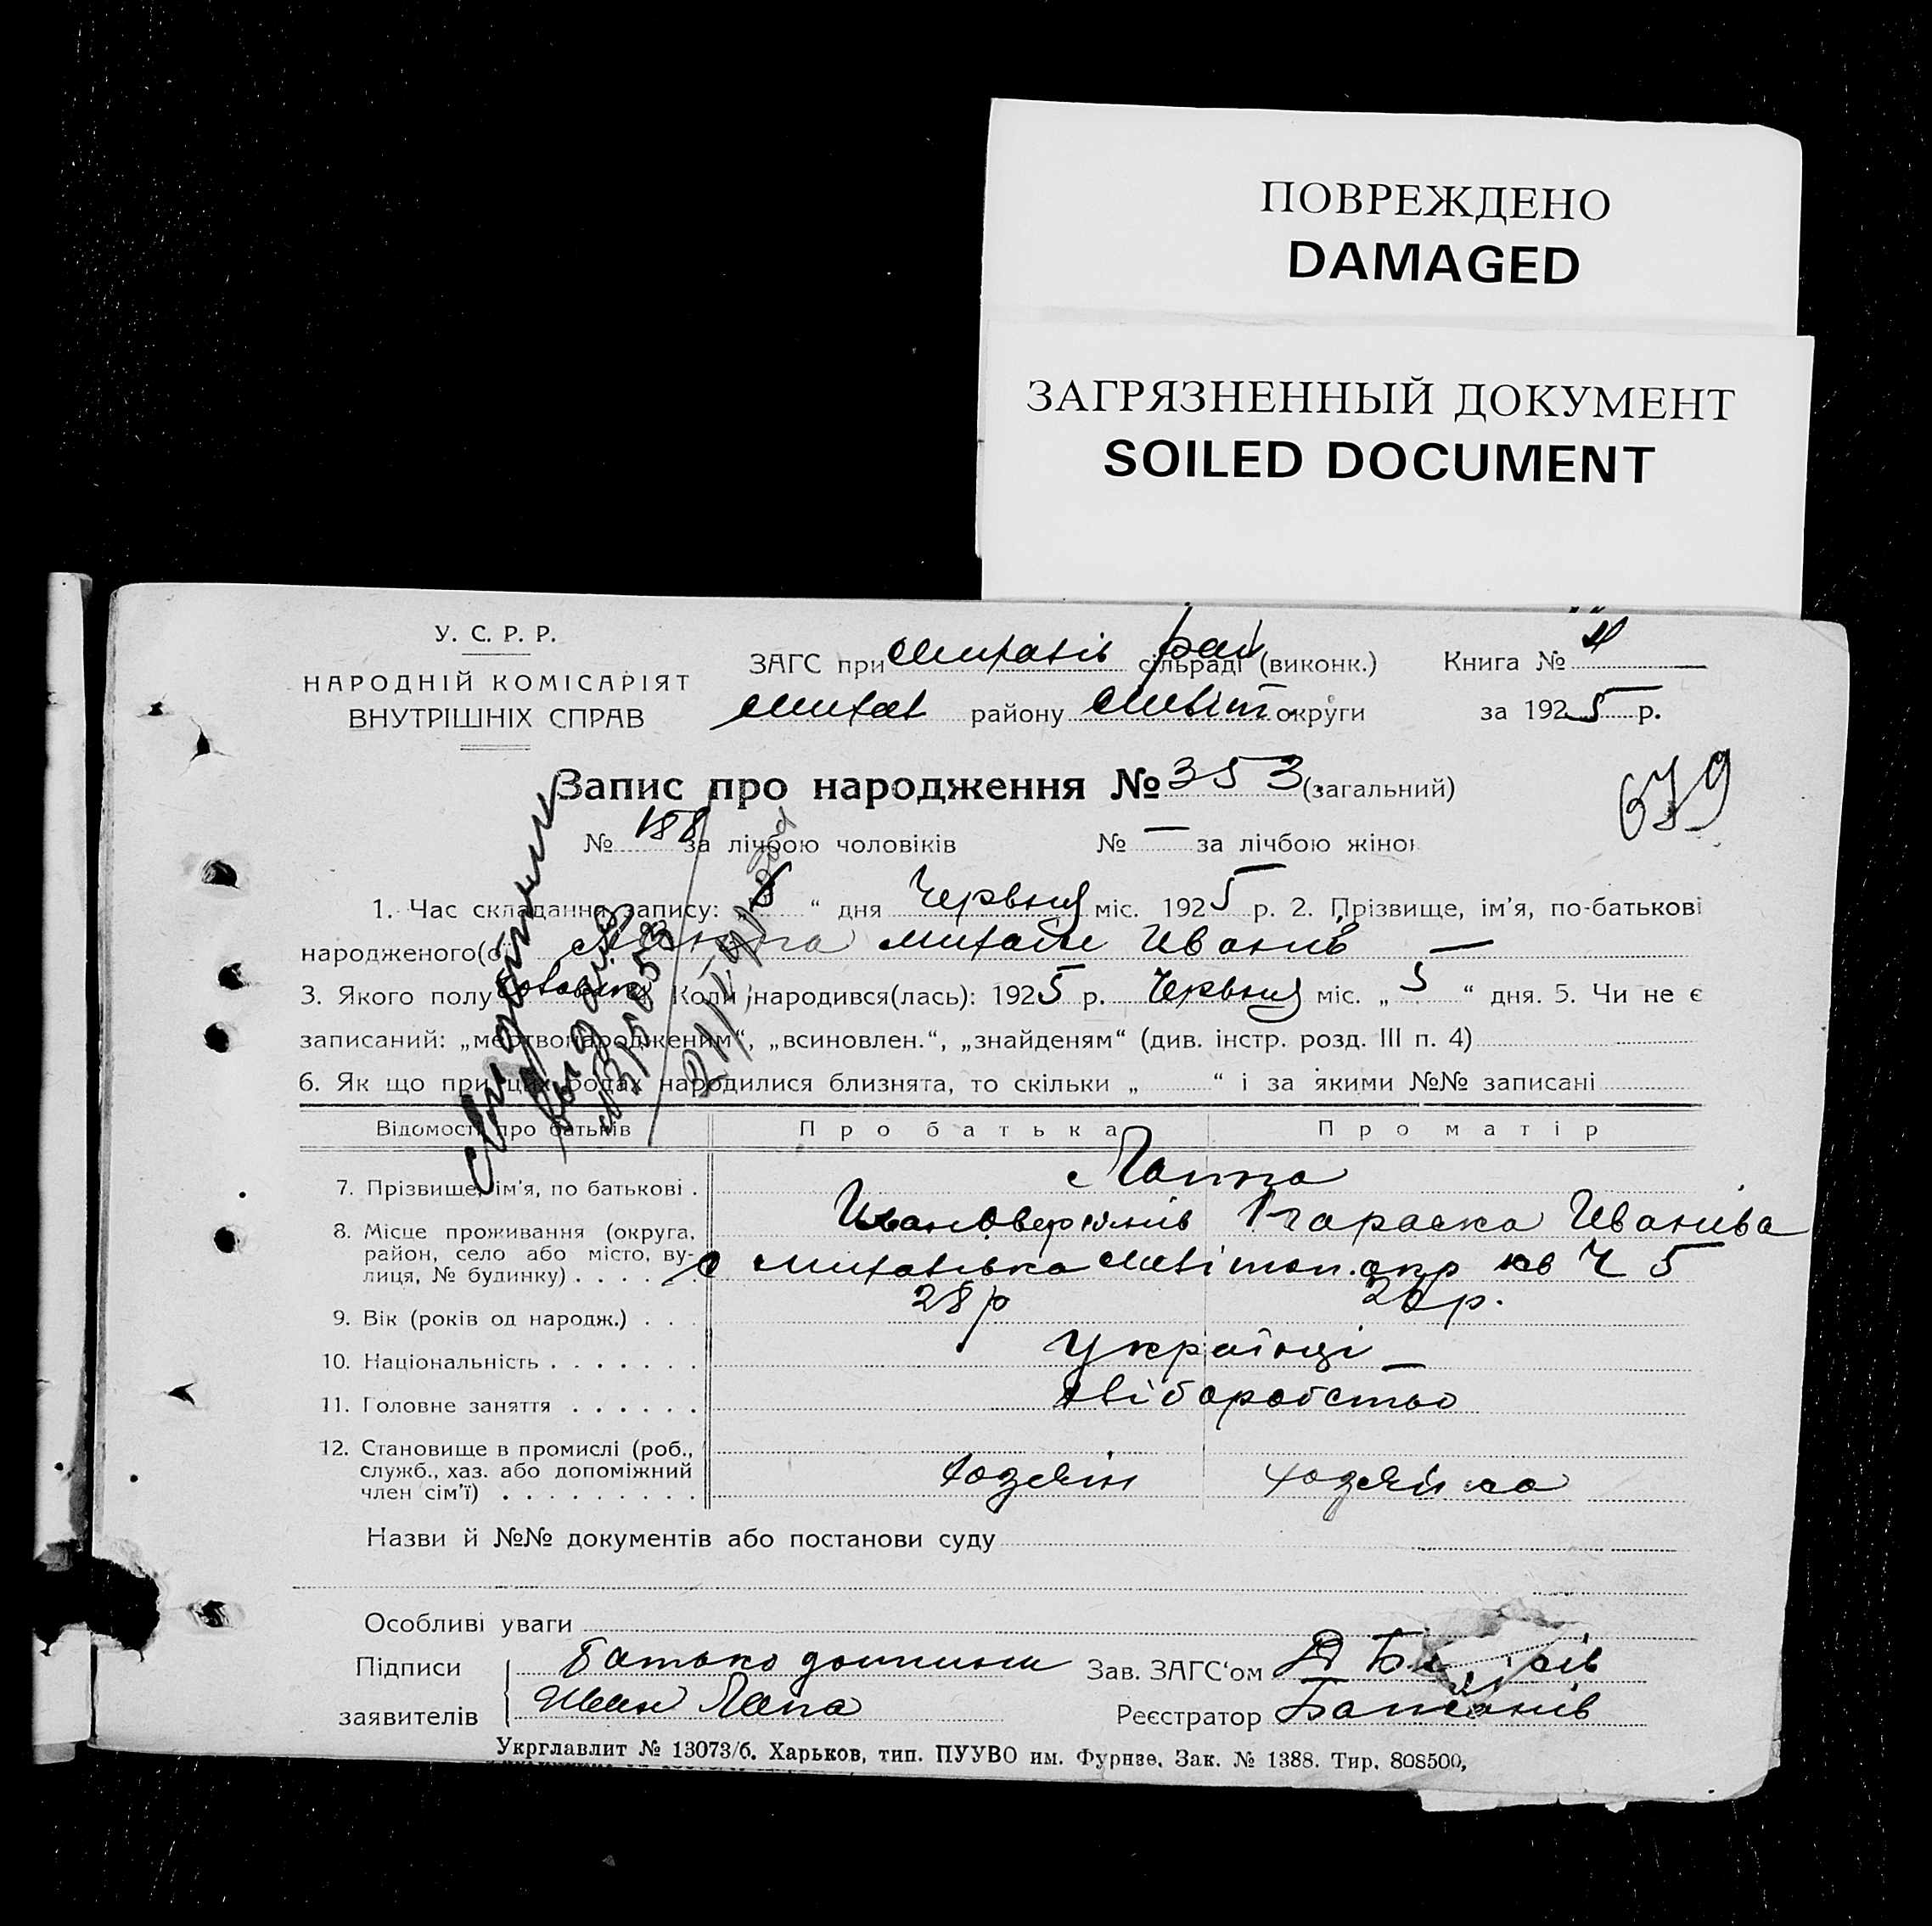 ПОВРЕЖДЕНО
DAMAGED
ЗАГРЯЗНЕННЫЙ ДОКУМЕНТ
SOILED DOCUMENT
У. С. Р. Р.
НАРОДНІЙ КОМІСАРІЯТ
ВНУТРІШНІХ СПРАВ
ЗАГС при Михайлів рай сільраді (виконк.) Книга №
Михай району Меліт. округи за 1925 р.
Запис про народження № 353 (загальний)
679
№ 188 за лічбою чоловіків № — за лічбою жінок
1. Час складання запису: „8“ дня Червня міс. 1925 р. 2. Прізвище, ім'я, по-батькові
народженого(ої) Лаппа Михайло Иванів —
3. Якого полу Коли народився(лась): 1925 р. Червня міс. „5“ дня. 5. Чи не є
записаний: „мертвонародженим“, „всиновлен.“, „знайденям“ (див. інстр. розд. III п. 4)
6. Як що при цих родах народилися близнята, то скільки „ “ і за якими №№ записані
Відомості про батьків Про батька Про матір
Лаппа
7. Прізвище, ім'я, по батькові .
Иван Параска Иванівна
8. Місце проживання (округа,
район, село або місто, ву-
лиця, № будинку) . . . . . с Михайлівка Мелітоп. окр кв Ч 5
9. Вік (років од народж.) . . . 28 р 26 р.
10. Національність . . . . . . . Українці —
11. Головне заняття . . . . . . хліборобство
12. Становище в промислі (роб.,
служб., хаз. або допоміжний
член сім'ї) . . . . . . . . . хозяїн хозяйка
Назви й №№ документів або постанови суду
Особливі уваги
Підписи Батько дитини Зав. ЗАГС'ом
заявителів Иван Лапа Реєстратор
Укрглавлит № 13073/б. Харьков, тип. ПУУВО им. Фрунзе. Зак. № 1388. Тир. 808500,